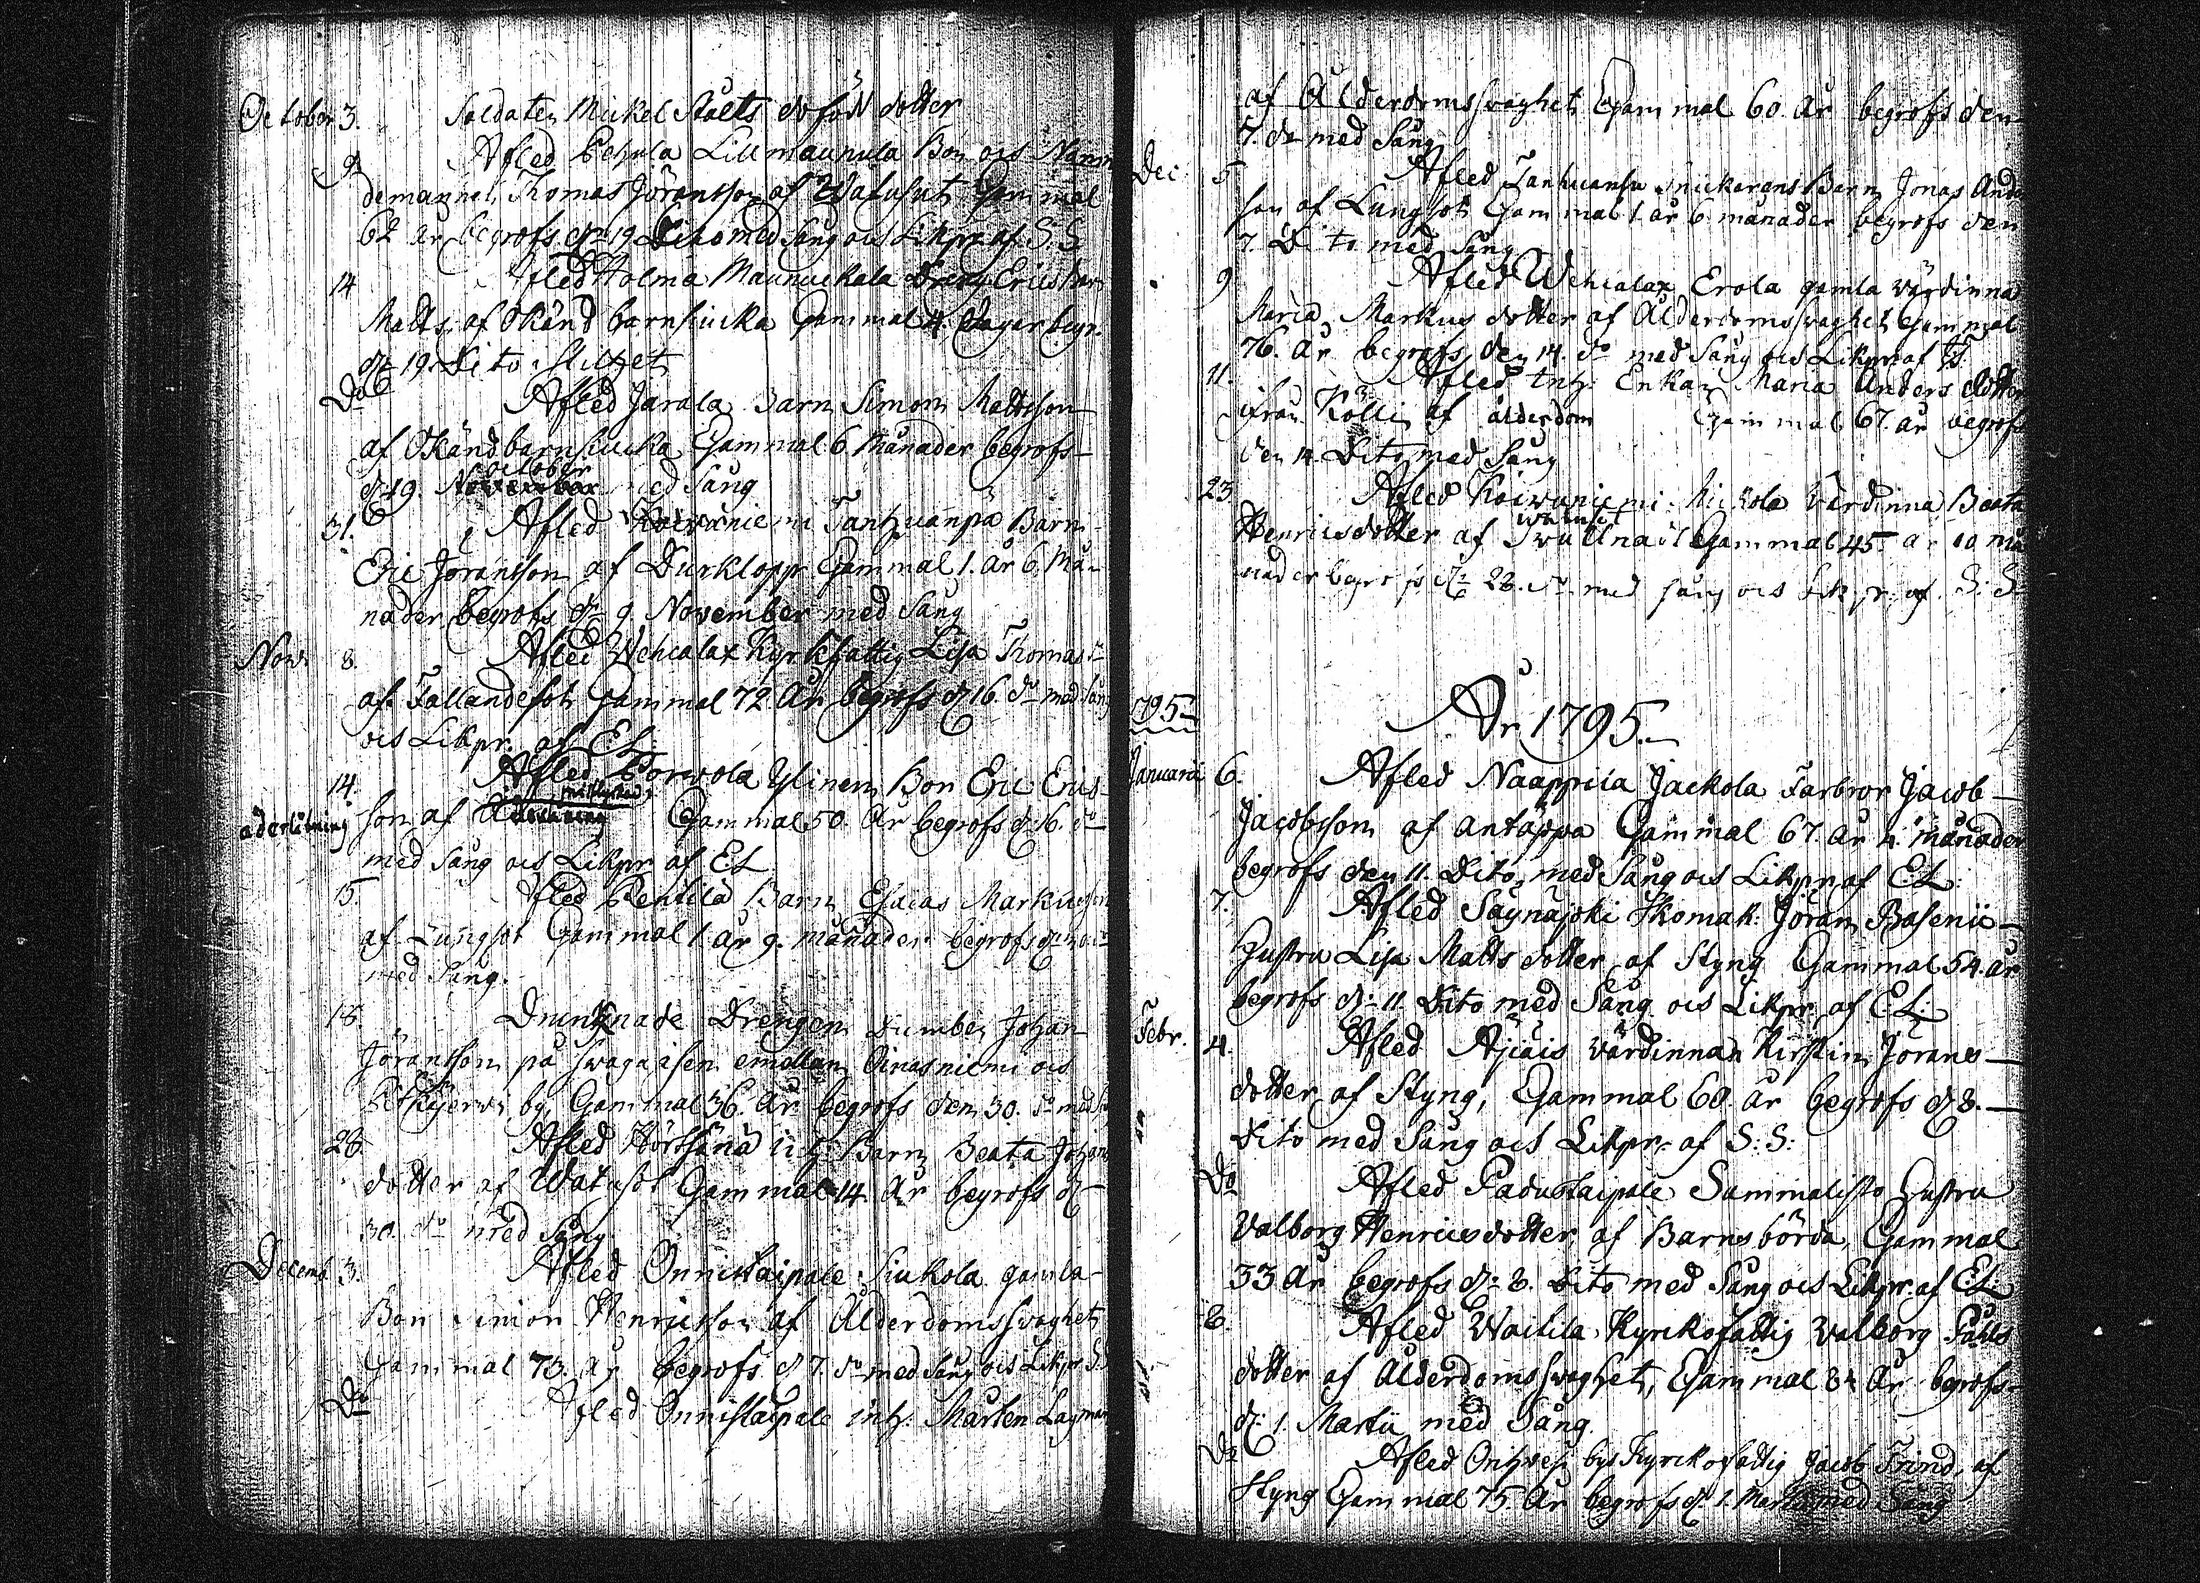 October 3. Soldaten Mickel Stolts dödfödd dotter
9. Afled Lillmaunula Bon ocs Nämn
demannen Thomas Jöransson af Watusot Gammal
62 år begrofs dn 19 Dito med Sång ocs Likpr. af S:S
14 Afled Holma Maunuckala Dreng Erics barn
Matts af Okänd barnsiucka Gammal 4. Dagar begr.
dn 19 Dito
Do Afled Jarala Barn Simon Mattsson
af Okänd barnsiucka Gammal 6 Månader begrofs
d. 19. October med Sång
31. Afled Koiwuniemi Barn
Eric Jöransson af Durklopp Gammal 1. år 6. Må-
nader begrofs dn 9. November med Sång
Nov. 8. Afled Wehcalax Kyrkfattig Lisa Thomas d:
af Fallandesot Gammal 72 År begrofs d. 16. do med Sång
ocs Likpr. af E:L
14. Afled Porwola Ylinen Bon Eric Erics-
aderlåtning son af Gammal 50. År begrofs d. 16. do
med Sång ocs Likpr af EL
15. Afled Pentilä Barn Esaias Markusson
af Lungsot Gammal 1. år 9. månader begrofs
med Sång.
18 Drunknade Drengen Johan
Jöransson på swaga isen emellan Oinasniemi ocs
by, Gammal 36. År begrofs den 30. do med
28. Afled inh. Barn Beata Johans
dotter af Watusot Gammal 14 År begrofs d
30. do med Sång
Decemb. 3. Afled Onnistaipale Siukola gamla
Bon Simon Henricsson af Ålderdomsswaghet
Gammal 73. År begrofs d 7. do med Sång ocs Likpr S:S
Do Afled Onnistaipale inh. Mårten Lagman
af Ålderdomsswaghet Gammal 60. År begrofs den
7. do med Sång
Dec. 5 Afled Snickarens Barn Jonas Anders
son af Lungsot Gammal 1. år 6. månader begrofs den
7. Dito med Sång
9 Afled Wehcalax Erola gamla värdinna
Maria Markus dotter af Ålderdomsswaghet Gammal
76. År begrafs den 14. do med Sång ocs Likpr af
11. Afled inh. Enkan Maria Anders dotter
ifrån Kölli af ålderdom Gammal 67. år begrofs
den 14 Dito med Sång
23 Afled Koiwuniemi Mickola Värdinna Beata
Henricsdotter af Gammal 45. år 10 må-
nader begrofs dn 28. do med sång ocs Likpr. af S:S
År 1795.
1795
Januarii 6. Afled Naappila Jackola Farbror Jacob
Jacobsson af Gammal 67. år 4. månader
begrofs den 11. Dito med Sång ocs Likpr af E:L:
7. Afled Säynäjoki Skomak. Jöran Basenii
Hustru Lisa Matts dotter af Styng Gammal 54. år
begrofs dn 11. Dito med Sång ocs Likpr af E:L:
Febr. 4. Afled Äjiäis Värdinnan Kirstin Jörans
dotter af Styng, Gammal 60 år begrofs d 8.
Dito med Sång ocs Likpr. af S:S:
Do Afled Padustaipale Sammalisto Hustru
Valborg Henricsdotter af Barnsbörda, Gammal
33 år begrofs dn 8. Dito med Sång ocs Likpr. af E:L:
8. Afled Kyrckofattig Walborg Påhls
dotter af Ålderdomsswaghet, Gammal 84 År begrofs
dn 1. Martii med Sång.
Do Afled bys Kyrckofattig Jacob Frind, af
Styng Gammal 75 år begrofs dn 1. Martii med Sång